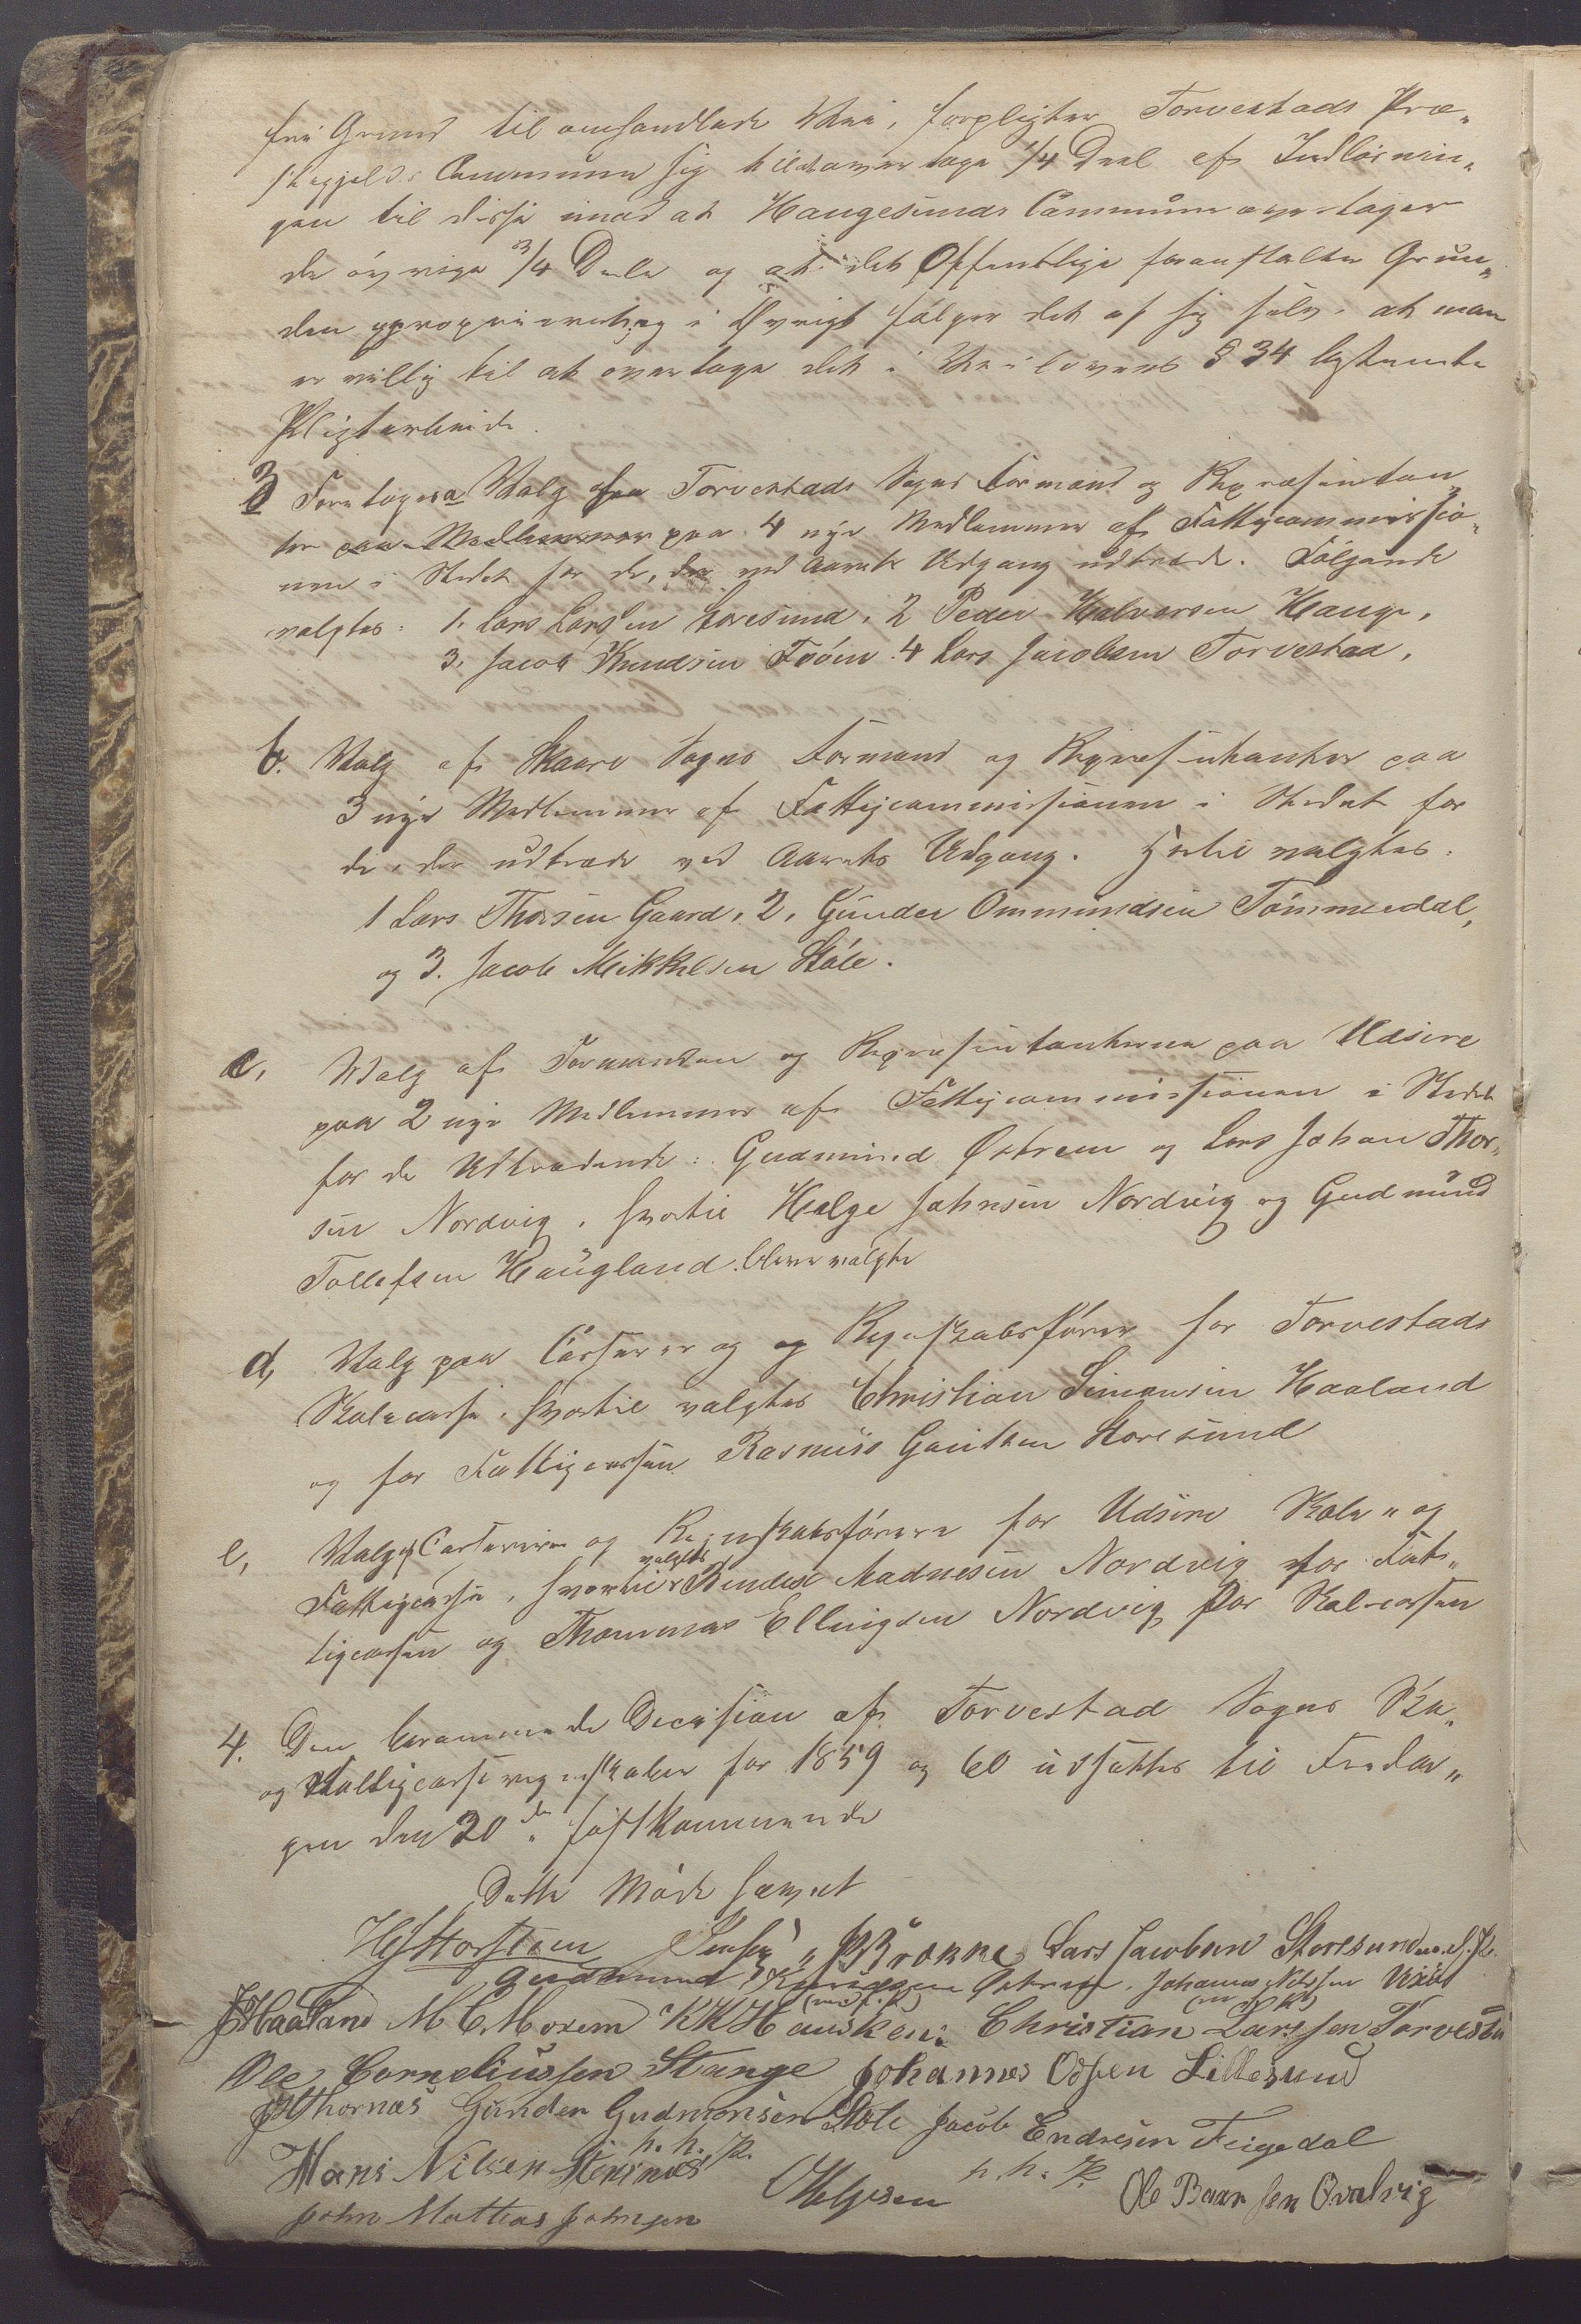 fri Grund til omhandlede Vei, forpligter Torvestads Præ„
stegjelds Commune sig til at overtage 1/4 Deel af Indløsnin„
gen til disse imod at Haugesunds Commune overtager
de øvrige 3/4 Dele og at det Offentlige foranstalter Grun„
den exproprieret, og i Øvrigt følger det af sig selv, at man
er villig til at overtage det i Veilovens § 34 bestemte
Pligtarbeide.
3 Foretoges a Valg fra Torvestads Sogns Formænd og Repræsentan„
ter paa Medlemmer paa 4 nye Medlemmer af Fattigcommissio„
nen i Stedet for de, der ved Aarets Udgang udtræde. Følgende
valgtes: 1. Lars Larsen Storesund, 2 Peder Halvorsen Hauge,
3. Jacob Knudsen Feøen. 4 Lars Jacobsen Torvestad.
b. Valg af Skaare Sogns Formænd og Repræsentanter paa
3 nye Medlemmer af Fattigcommissionen i Stedet for
de, der udtræde ved Aarets Udgang. Hertil valgtes:
1 Lars Thorsen Gaard, 2, Gunder Ommundsen Tømmerdal,
og 3. Jacob Mikkelsen Støle.
c, Valg af Formanden og Repræsentanterne paa Udsire
paa 2 nye Medlemmer af Fattigcommissionen i Stedet
for de Udtrædende: Gudmund Østrem og Lars Johan Thor„
sen Nordvig, hvortil Helge Johnsen Nordvig og Gudmund
Tollefsen Haugland bleve valgte
d, Valg paa Casserer og og Regnskabsfører for Torvestads
Skolecasse, hvortil valgtes Christian Simonsen Haaland
og for Fattigcassen Rasmus Gautsen Storesund
e, Valg af Casserere og Regnskabsførere for Udsire Skole„ og
Fattigcasse, hvortil valgtes Bendix Madnesen Nordvig for Fat„
tigcassen og Thommas Ellingsen Nordvig for Skolecassen
4. Den berammede Decision af Torvestad Sogns Sko„
og Fattigcasseregnskaber for 1859 og 60 udsattes til Freda„
gen den 20de førstkommende
Dette Møde hævet
Jensen, Brække Lars Jacobsen Storesund m. f. P.
Gudmund Østrem. Johannes Nilssen
Haaland M C Moxem K K Hausken. (m. f. P) Christian Larssen Torvestad
Ole Corneliussen Stange Johannes Odsen Lillesund
Thornas Gunder Gudmensen Støle Jacob Endresen Feigedal
h. h. P. h. h. P.
Hans Nilsen Stensnæs
Helgesen Ole Baarsen Qvalvig
John Mattias Johnsen